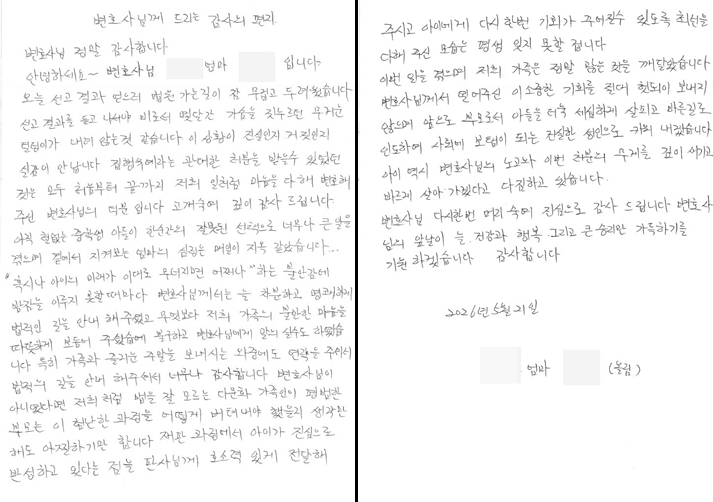 변호사님께 드리는 감사의 편지.
변호사님 정말 감사합니다
안녕하세요~ 변호사님 엄마 입니다~
오늘 선고 결과 얻으러 법원 가는길이 참 무겁고 두려웠습니다
선고 결과를 듣고 나서야 비로서 몇달간 가슴을 짓누르던 무거운
덩심이가 내려 앉는것 같습니다 이 상황이 진실인지 거짓인지
실감이 안납니다 집행유예라는 관대한 처분을 받을수 있었던
것은 모두 처음부터 끝까지 저희 일처럼 마음을 다해 변호해
주신 변호사님의 덕분 입니다 고개숙여 깊이 감사 드립니다
아직 철없는 중학생 아들이 한순간의 잘못된 선택으로 너무나 큰 일을
겪으며 곁에서 지켜보는 엄마의 심정은 매일이 지옥 같았습니다...
"혹시나 아이의 미래가 이대로 무너지면 어쩌나" 하는 불안감에
밤잠을 이루지 못할때마다 변호사님께서는 늘 차분하고 명쾌하게
법적인 길을 안내 해주셨고 무엇보다 저희 가족의 불안한 마음을
따뜻하게 보듬어 주셨습에 불구하고 변호사님에게 말의 실수도 하였습
니다 특히 가족과 즐거운 주말을 보내시는 와중에도 연락을 주셔서
법적의 길을 안내 해주셔서 너무나 감사합니다 변호사님이
아니였다면 저희 처럼 법을 잘 모르는 다문화 가족인이 평범한
부모는 이 험난한 과정을 어떻게 버텨내야 했을지 생각만
해도 아찔하기만 합니다 재판 과정에서 아이가 진심으로
반성하고 있다는 점을 판사님께 호소력 있게 전달해
주시고 아이에게 다시한번 기회가 주어질수 있도록 최선을
다해 주신 모습은 평생 잊지 못할 겁니다
이번 일을 겪으며 저희 가족은 정말 많은 것을 깨달았습니다
변호사님께서 열어주신 이 소중한 기회를 절대 헛되이 보내지
않으며 앞으로 부모로서 아들을 더욱 세심하게 살피고 바른길로
인도하여 사회에 보탬이 되는 건실한 성인으로 키워 내겠습니다
아이 역시 변호사님의 노고와 이번 처분의 무게를 깊이 새기고
바르게 살아 가겠다고 다짐하고 있습니다.
변호사님 다시한번 머리숙여 진심으로 감사 드립니다 변호사
님의 앞날이 늘 건강과 행복 그리고 큰 승리만 가득하기를
기원 하겠습니다 감사합니다
2026년 5월 21일
엄마 (올림)